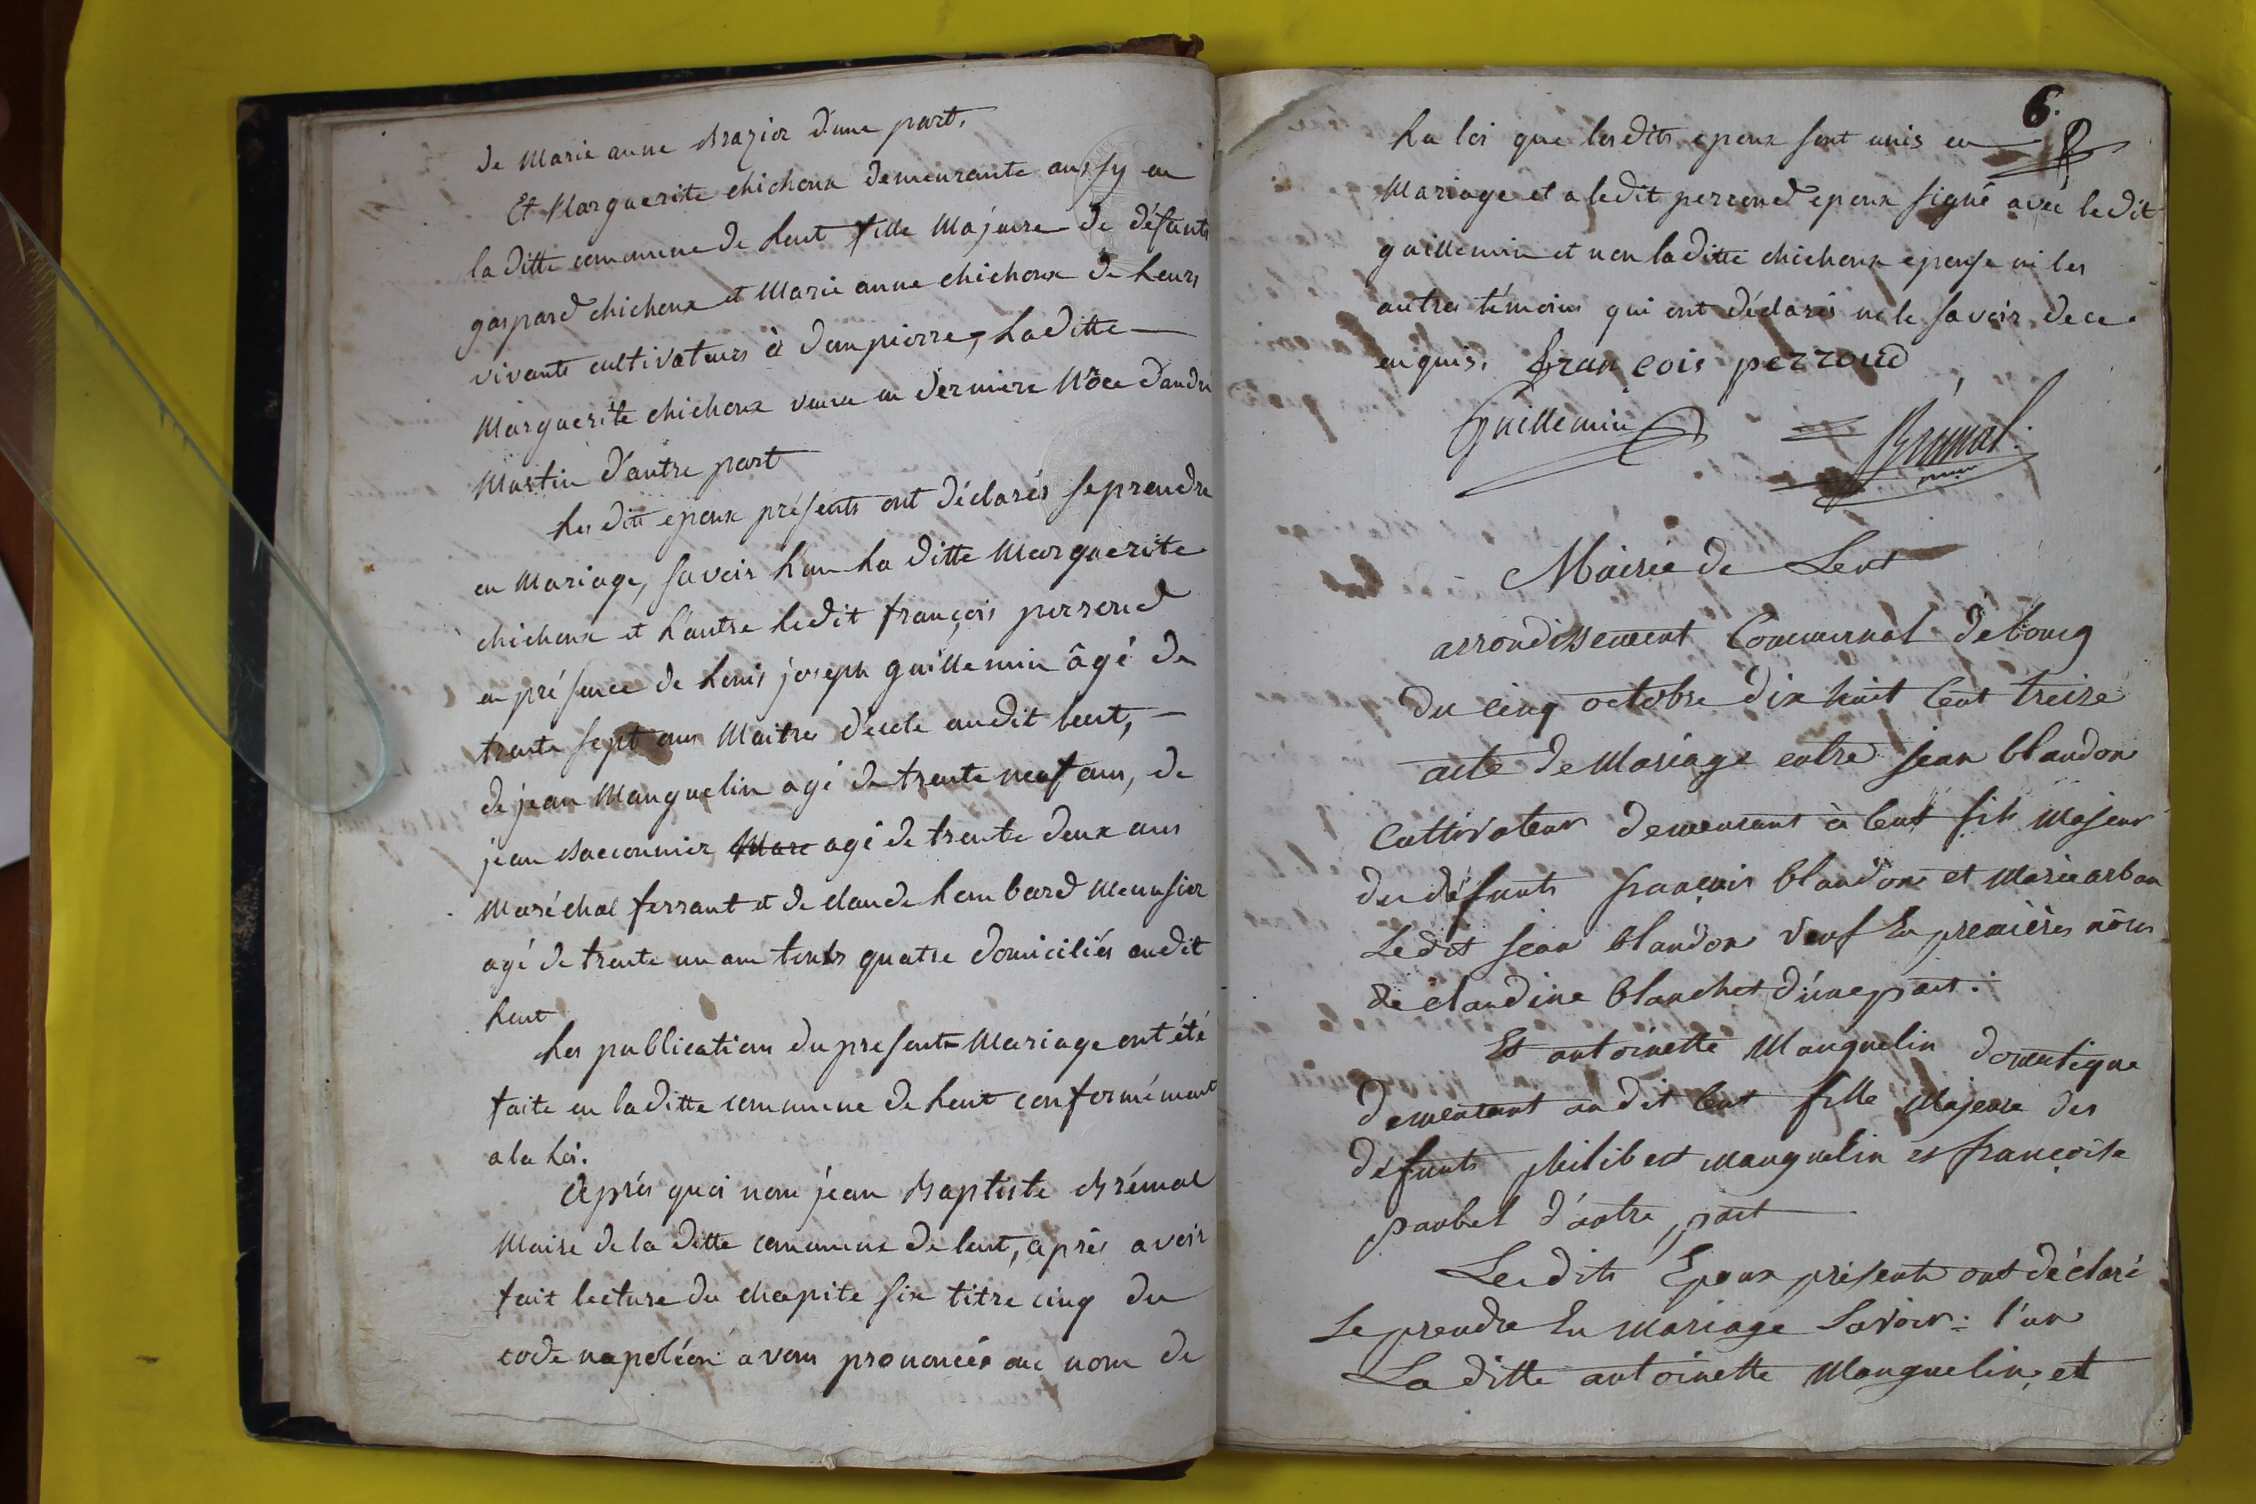 de Marie anne Brazier d'une part,
Et Marguerite chichoux demeurante aussy en
la ditte commune de Lent fille Majeure de défunts
gaspard chichoux et Marie anne chichoux de Leurs
vivants cultivateurs à dompierre, Laditte
Marguerite chichoux veuve en derniere Nôce d'andré
Martin d'autre part
Les dits epoux présents ont déclarés se prendre
en Mariage, savoir L'un La ditte Marguerite
chichoux et L'autre Ledit françois perroud
en présence de Louis joseph guillemin âgé de
trente sept ans Maitre d'ecole audit Lent,
de jean Manguelin agé de trente neuf ans, de
jean Baccounier Mare agé de trente deux ans
Maréchal ferrant et de claude Lombard Menusier
agé de trente un an touts quatre domiciliés audit
Lent
Les publications du present Mariage ont été
faite en laditte commune de Lent conformément
a la Loi.
Après quoi nous jean Baptiste Brémal
Maire de la ditte commune de lent, après avoir
fait lecture du chapite six titre cinq du
code napoléon avons prononcés au nom de
6.
La loi que lesdits epoux sont unis en
Mariage et a ledit perroud epoux signé avec ledit
guillemin et non laditte chichoux epouse ni les
autres témoins qui ont déclarés ne le savoir de ce
enquis. François perroud
Guillemin Brémal
Mairie de Lent
arrondissement Communal de bourg
du cinq octobre dix huit Cent treize
acte de Mariage entre jean blandon
Cultivateur demeurant à lent fils Majeur
des défunts françois blandon et Marie arban
Ledit jean blandon veuf En premières nôces
de claudine blanchet d'une part.
Et antoinette Manguelin domestique
demeurant au dit lent fille Majeure des
défunts philibert manguelin et françoise
paubel d'autre part
Les dits Epoux présents ont déclaré
se prendre En mariage Savoir: l'un
La ditte antoinette Manguelin, et